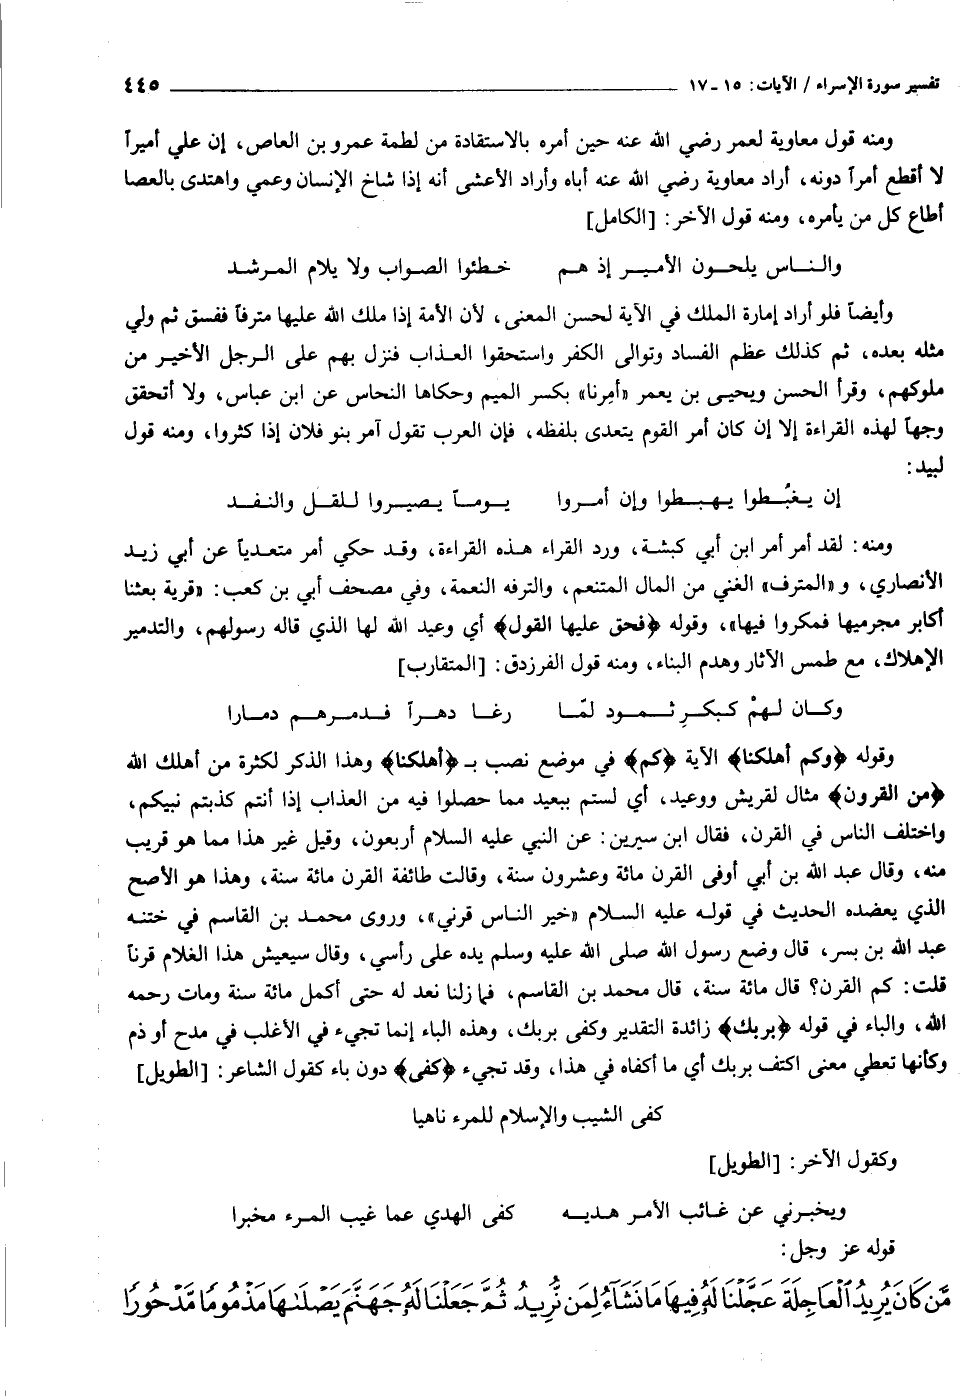 تفسير سورة الإسراء / الآيات: ١٥ـ١٧ ٤٤٥
ومنه قول معاوية لعمر رضي الله عنه حين أمره بالاستقادة من لطمة عمرو بن العاص، إن علي أميراً
لا أقطع أمراً دونه، أراد معاوية رضي الله عنه أباه وأراد الأعشى أنه إذا شاخ الإنسان وعمي واهتدى بالعصا
أطاع كل من يأمره، ومنه قول الآخر: [الكامل]
والنـاس يلحـون الأميـر إذ هـم خـطئوا الصواب ولا يلام المـرشد
وأيضاً فلو أراد إمارة الملك في الآية لحسن المعنى، لأن الأمة إذا ملك الله عليها مترفاً ففسق ثم ولي
مثله بعده، ثم كذلك عظم الفساد وتوالى الكفر واستحقوا العذاب فنزل بهم على الرجل الأخير من
ملوكهم، وقرأ الحسن ويحيى بن يعمر «أمِرنا» بكسر الميم وحكاها النحاس عن ابن عباس، ولا أتحقق
وجهاً لهذه القراءة إلا إن كان أمر القوم يتعدى بلفظه، فإن العرب تقول آمر بنو فلان إذا كثروا، ومنه قول
لبيد:
إن يغبُـطوا يـهبـطوا وإن أمـروا يـومـاً يـصيـروا للقـل والنـفـد
ومنه: لقد أمر أمر ابن أبي كبشة، ورد القراء هذه القراءة، وقد حكي أمر متعدياً عن أبي زيد
الأنصاري، و «المترف» الغني من المال المتنعم، والترفه النعمة، وفي مصحف أبي بن كعب: «قرية بعثنا
أكابر مجرميها فمكروا فيها»، وقوله ﴿فحق عليها القول﴾ أي وعيد الله لها الذي قاله رسولهم، والتدمير
الإهلاك، مع طمس الآثار وهدم البناء، ومنه قول الفرزدق: [المتقارب]
وكـان لـهمْ كـبكـرِ ثـمـود لمّـا رغـا دهـراً فـدمـرهـم دمـارا
وقوله ﴿وكم أهلكنا﴾ الآية ﴿كم﴾ في موضع نصب بـ ﴿أهلكنا﴾ وهذا الذكر لكثرة من أهلك الله
﴿من القرون﴾ مثال لقريش ووعيد، أي لستم ببعيد مما حصلوا فيه من العذاب إذا أنتم كذبتم نبيكم،
واختلف الناس في القرن، فقال ابن سيرين: عن النبي عليه السلام أربعون، وقيل غير هذا مما هو قريب
منه، وقال عبد الله بن أبي أوفى القرن مائة وعشرون سنة، وقالت طائفة القرن مائة سنة، وهذا هو الأصح
الذي يعضده الحديث في قوله عليه السلام «خير الناس قرني»، وروى محمد بن القاسم في ختنه
عبد الله بن بسر، قال وضع رسول الله صلى الله عليه وسلم يده على رأسي، وقال سيعيش هذا الغلام قرناً
قلت: كم القرن؟ قال مائة سنة، قال محمد بن القاسم، فما زلنا نعد له حتى أكمل مائة سنة ومات رحمه
الله، والباء في قوله ﴿بربك﴾ زائدة التقدير وكفى بربك، وهذه الباء إنما تجيء في الأغلب في مدح أو ذم
وكأنها تعطي معنى اكتف بربك أي ما أكفاه في هذا، وقد تجيء ﴿كفى﴾ دون باء كقول الشاعر: [الطويل]
كفى الشيب والإسلام للمرء ناهيا
وكقول الآخر: [الطويل]
ويخبرني عن غـائب الأمـر هـديـه كفى الهدي عما غيب المرء مخبرا
قوله عز وجل:
مَّن كَانَ يُرِيدُ ٱلْعَاجِلَةَ عَجَّلْنَا لَهُۥ فِيهَا مَا نَشَآءُ لِمَن نُّرِيدُ ثُمَّ جَعَلْنَا لَهُۥ جَهَنَّمَ يَصْلَىٰهَا مَذْمُومًا مَّدْحُورًا